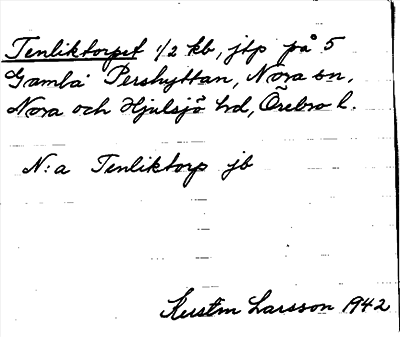 Tenliktorpet 1/2 kb, jtp på 5
Gamla Pershyttan, Nora sn,
Nora och Hjulsjö hd, Örebro l.
N:a Tenliktorp jb
Kerstin Larsson 1942